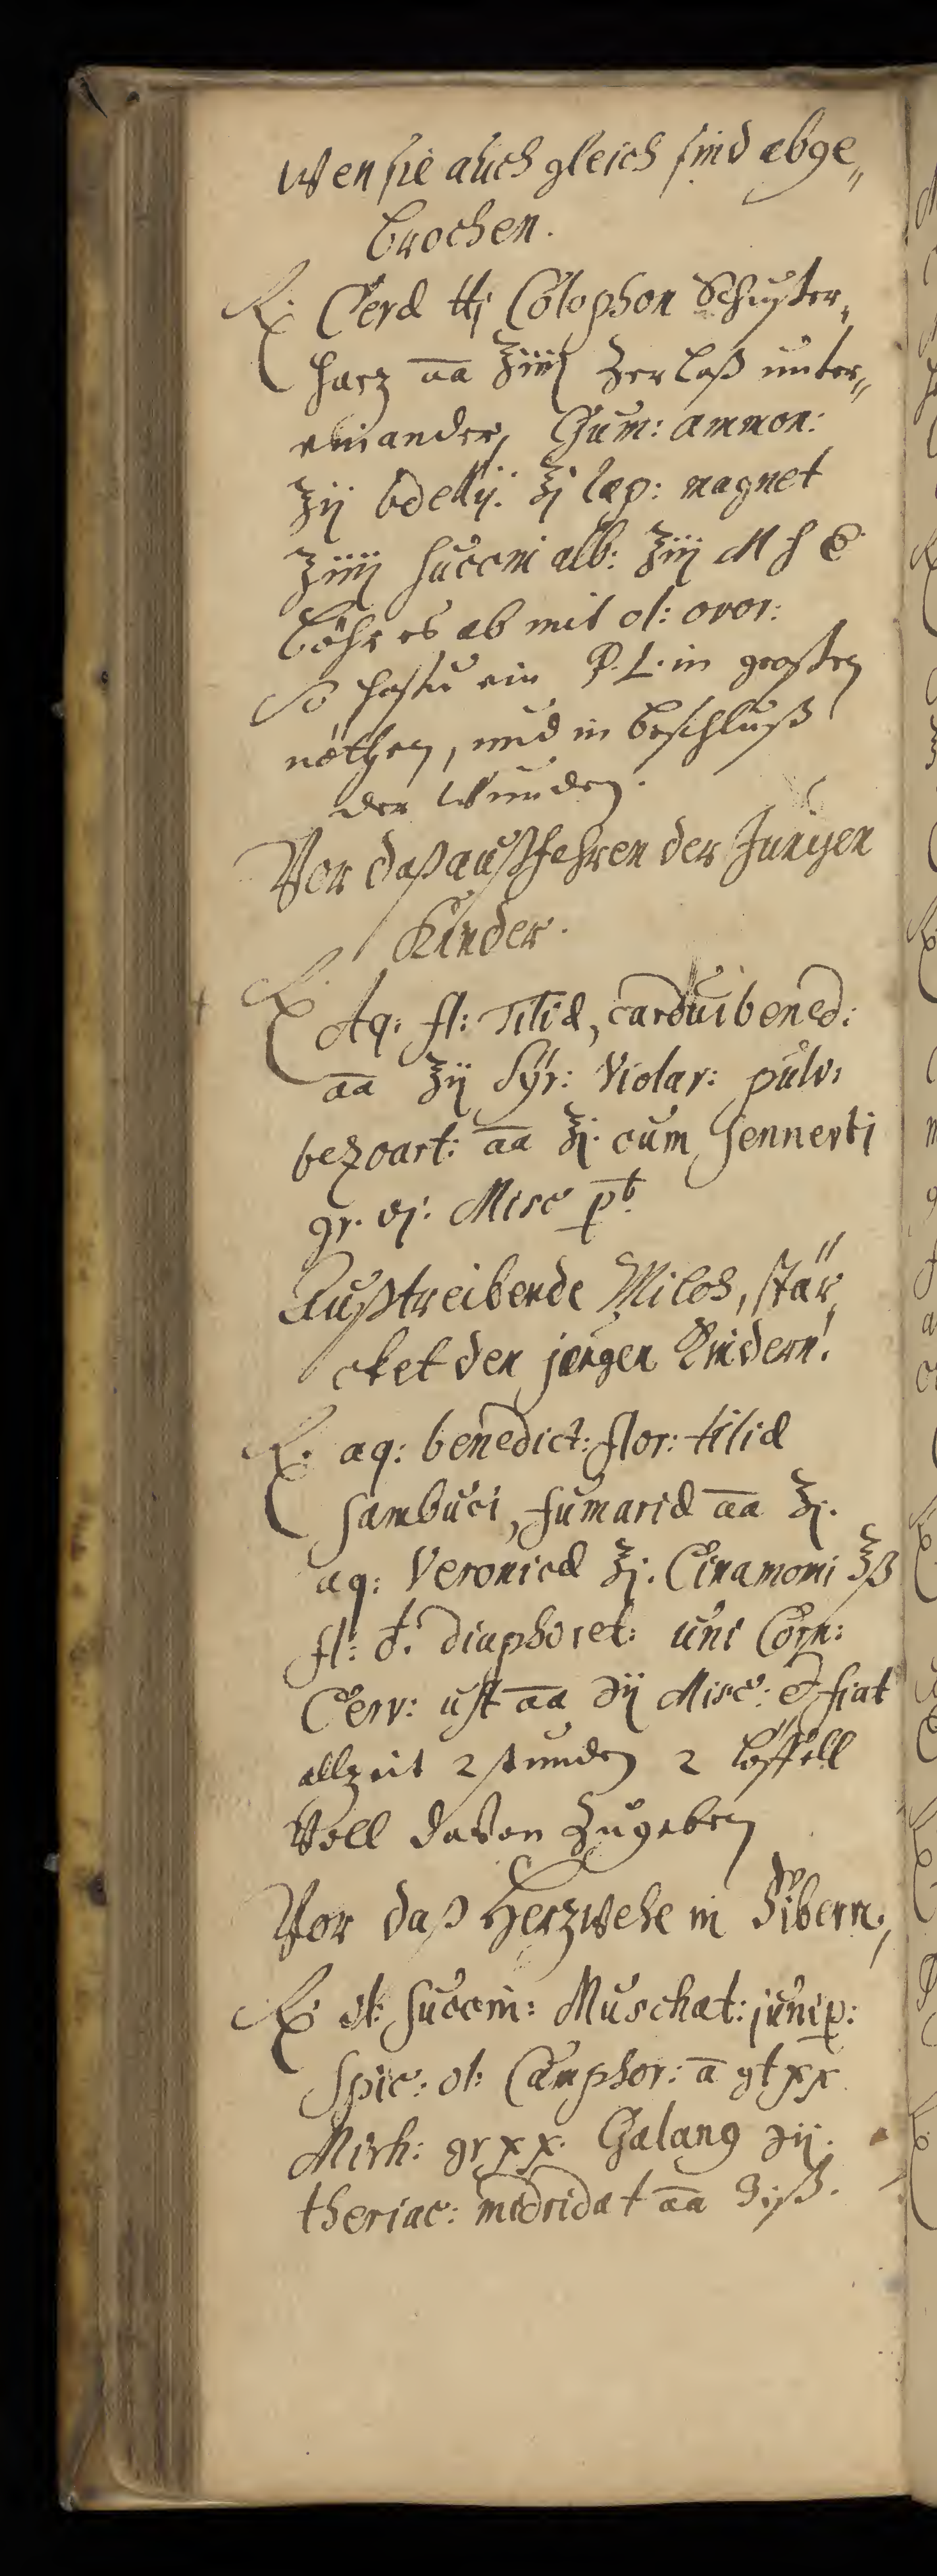 Wen sie auch gleich sind abge„
brochen.
℞. Ceræ ℔j Colophon Schuster„
harz a̅a̅ ʒiiij Zerlaß unter„
einander, Gum: ammon:
ʒij bdellij: ʒj lap: magnet
ʒiiij succini alb: ʒiij M f
es ab mit ol: ovor:
So hastu ein P. L. in grosten
nöthen, und in beschluß
der Wunden.
Vor daß außfahren der Jungen
Kinder.
℞. Aq: fl: Tiliæ, cardui bened:
a̅a̅ ℥ij Syr: Violar: pulv:
bezoart: a̅a̅ ʒj. cum Sennerti
gr. vj. Misc
Außtreibende Milch, stär„
cket den jungen Kindern.
℞. aq: benedict: flor: tiliæ
sambuci, fumariæ a̅a̅ ℥j.
aq: Veronicæ ℥j. Cinamomi ℥ß
fl: ♁. diaphoret: uni Corn:
Cerv: ust a̅a̅ ℈ij Misc: et fiat
allzeit 2 stunden 2 löffell
Voll davon Zugeben
Vor daß Herzwehe in Fibern,
℞. ol: succin: Muschat: junip:
Spic: ol: Camphor: a̅ gt xx
Mirh: gr xx. Galang ℈ij.
theriac: midridat a̅a̅ ℈iß.